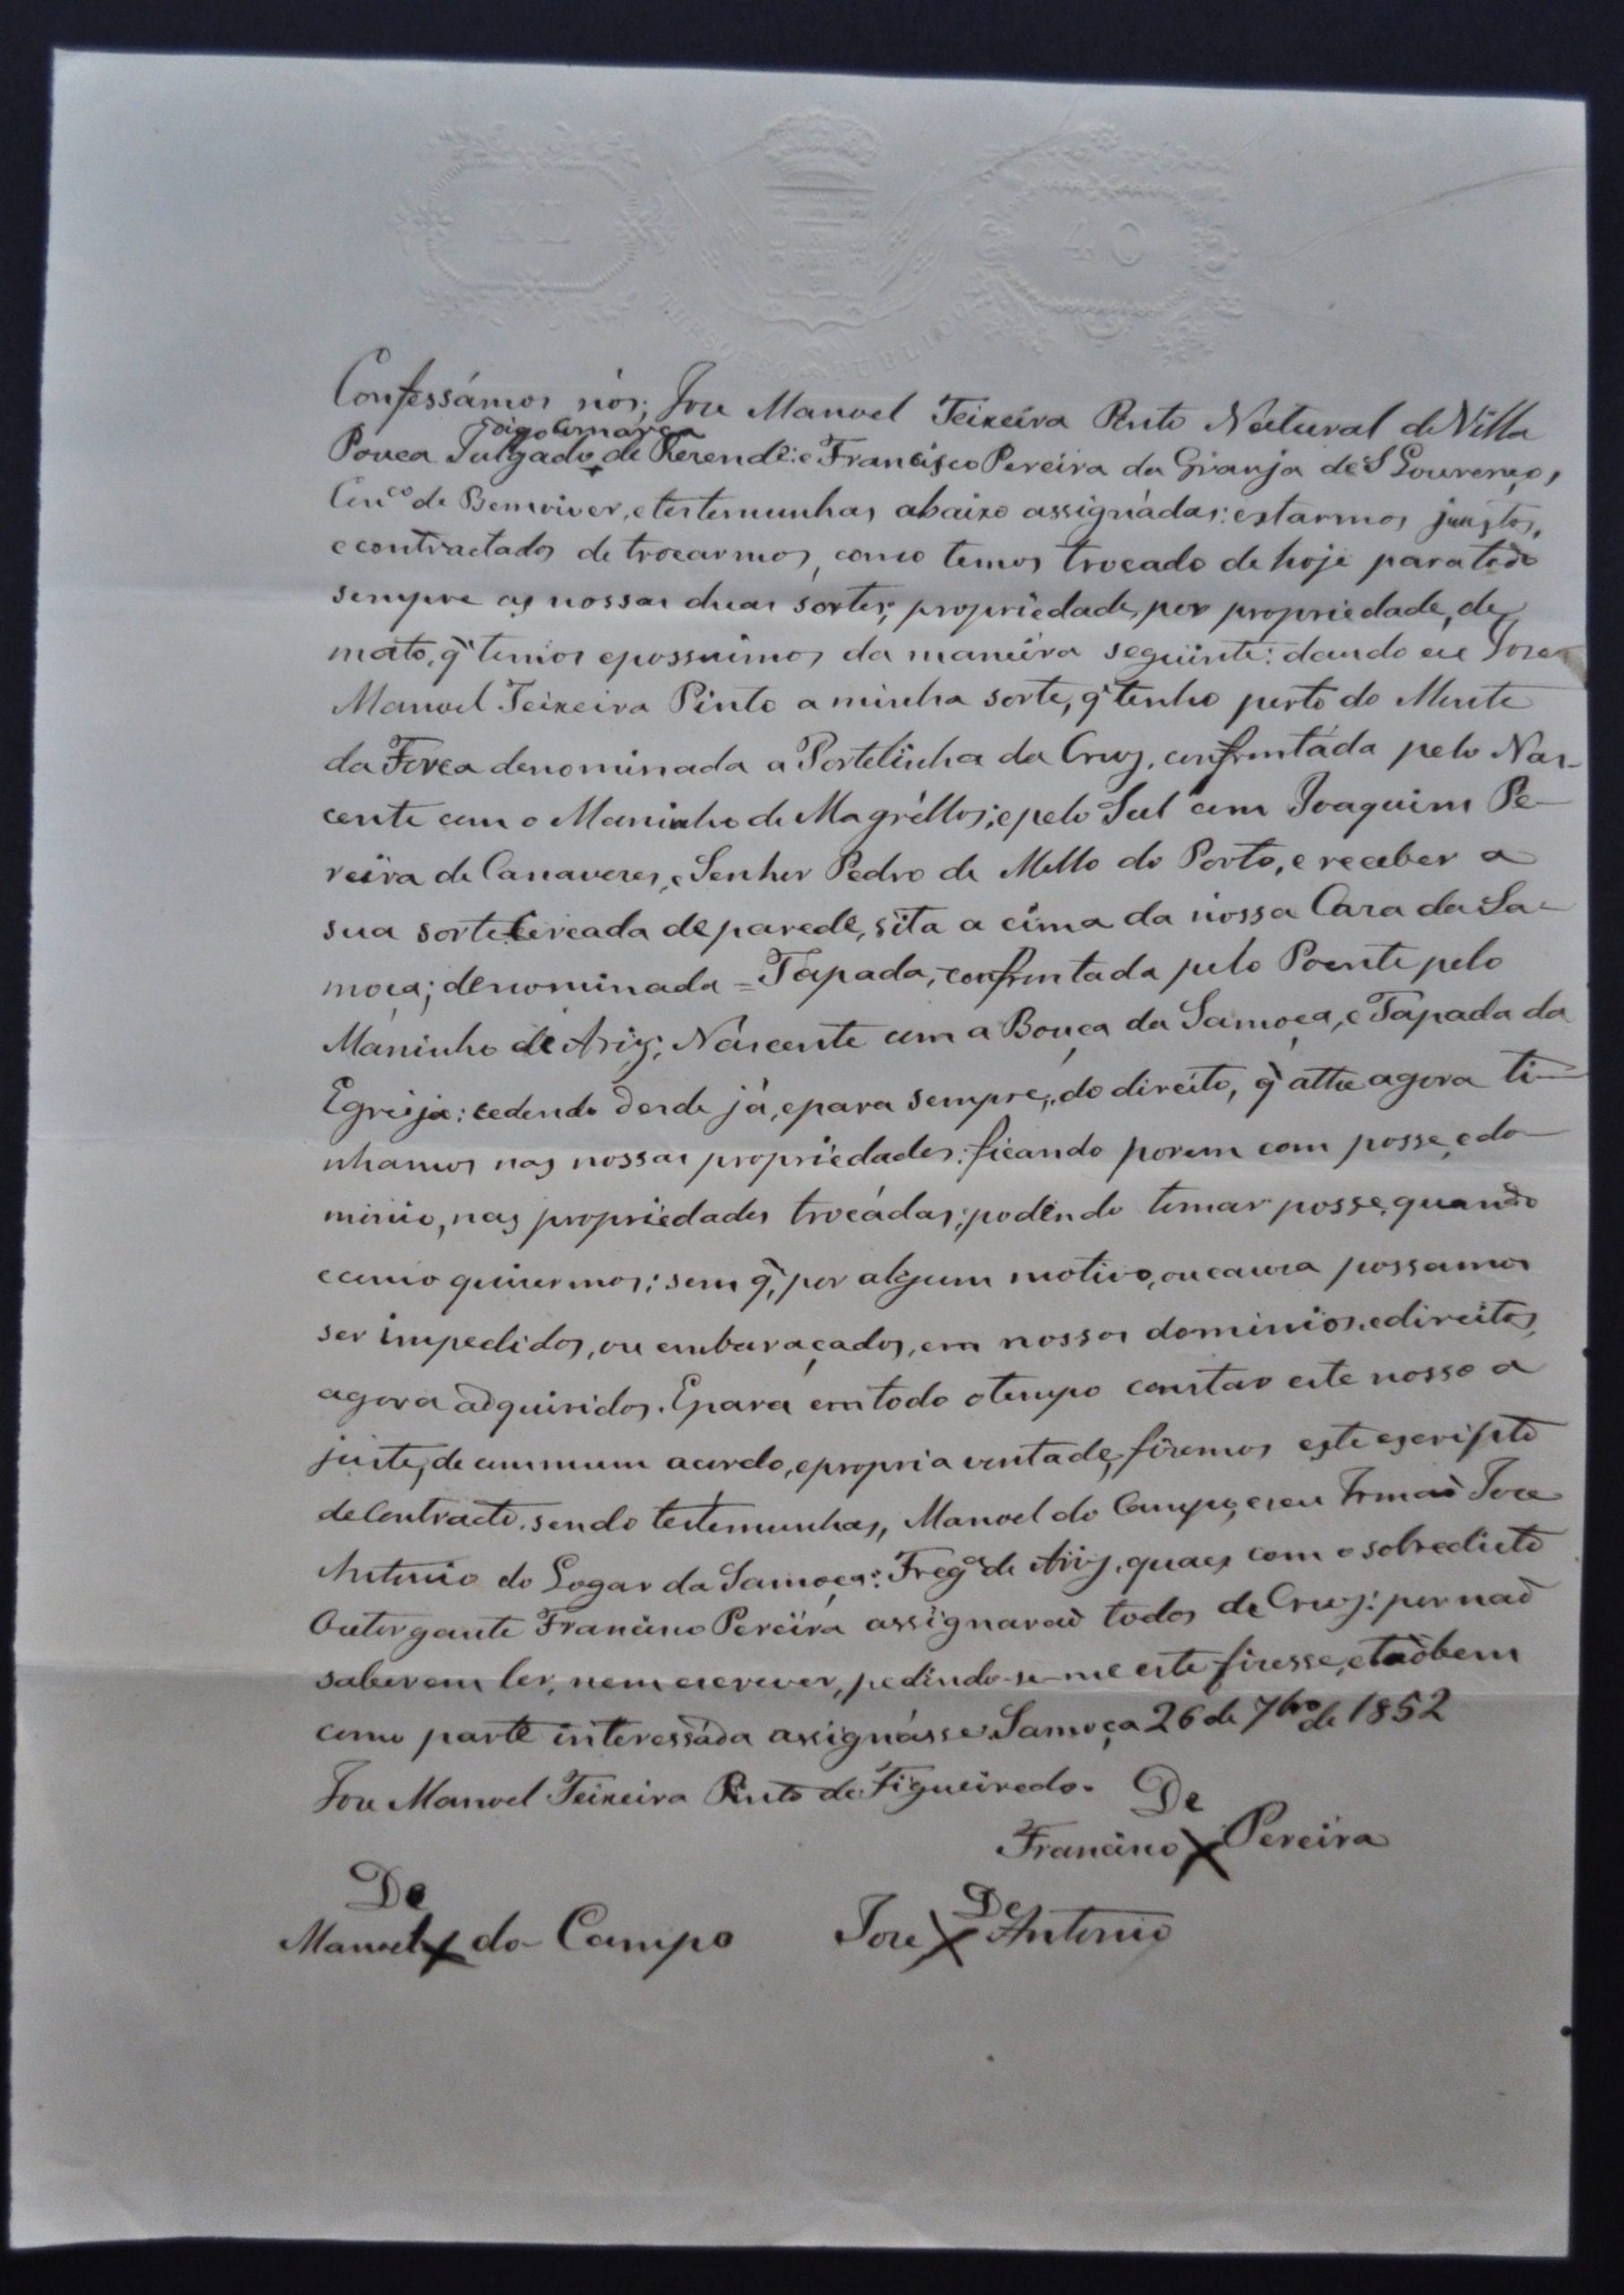 40
Confessámos nós; Joze Manoel Teixeira Pinto Natural de Villa
digo Comarca
Pouca Julgado de Rezende: e Francisco Pereira da Granja de S Lourenço,
Conc.º de Bemviver, e testemunhas abaixo assignádas: estarmos justos,
e contractados de trocarmos, como temos trocado de hoje para todo
sempre as nossas duas sortes; propriedade, por propriedade, de
mato, q̃ temos e possuimos da maneira seguinte: dando eu Joze
Manoel Teixeira Pinto a minha sorte, q̃ tenho perto do Monte
da Forca denominada a Portelinha da Cruz, confrontáda pelo Nas-
cente com o Maninho de Magréllos; e pelo Sul com Joaquim Pe-
reira de Canavezes, e Senhor Pedro de Mello do Porto, e receber a
sua sorte cercada de parede, sita a cima da nossa Caza da Sa-
moça; denominada = Tapada, confrontada pelo Poente pelo
Maninho de Ariz; Nascente com a Bouça da Samoça, e Tapada da
Egreija: cedendo desde já, e para sempre, do direito, q̃ athe agora ti-
nhamos nas nossas propriedades: ficando porem com posse, e do-
minio, nas propriedades trocádas; podendo tomar posse, quando
e como quizermos; sem q̃, por algum motivo, ou cauza possamos
ser impedidos, ou embaraçados, em nossos dominios, e direitos,
agora adquiridos. E para em todo o tempo constar este nosso a
juste, de commum acordo, e propria vontade, fizemos este escripto
de Contracto, sendo testemunhas, Manoel do Campo, e seu Irmaõ Joze
Antonio do Logar da Samoça: Freg.ª de Ariz, quaes com o sobredicto
Outorgante Francisco Pereira assignaraõ todos de Cruz: por naõ
saberem ler, nem escrever, pedindo-se-me este fizesse, e taõbem
como parte interessáda assignásse. Samoça 26 de 7bro de 1852
Joze Manoel Teixeira Pinto de Figueiredo.
De
Francisco X Pereira
De
Manoel X do Campo
De
Joze X Antonio